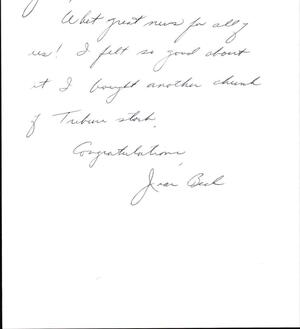 What great news for all of
us! I felt so good about
it I bought another chunk
of Tribune stock.
Congratulations,
Joan Beck